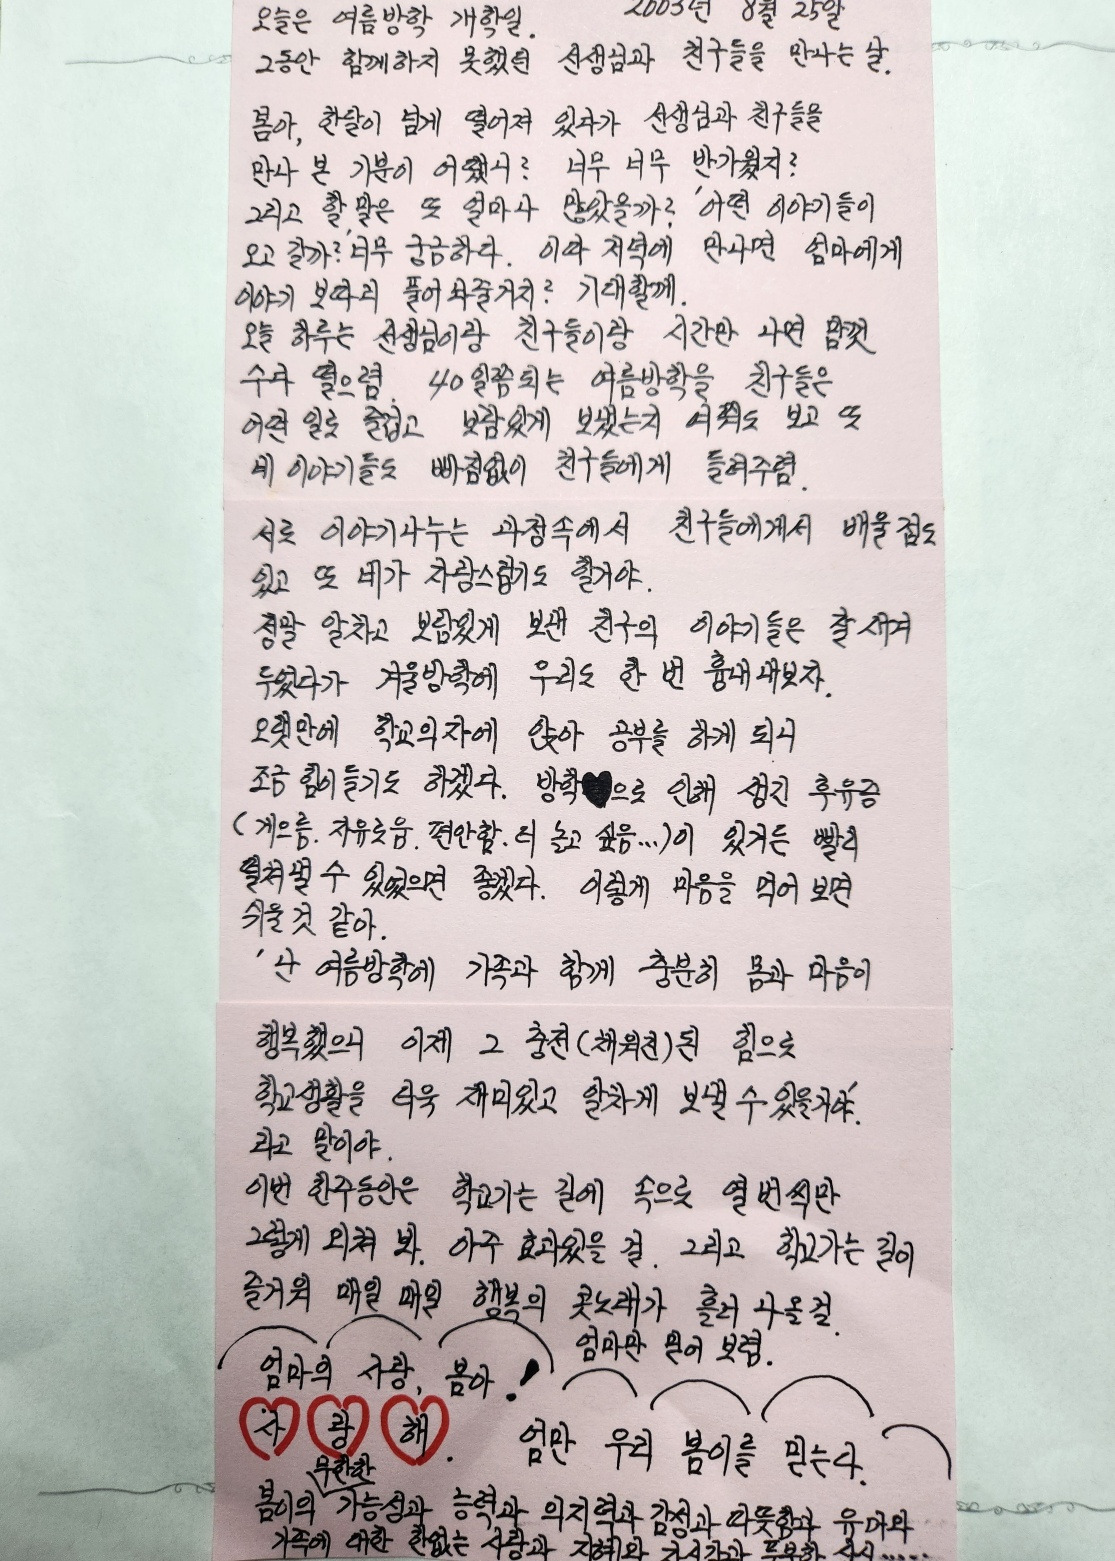 2003년 8월 25일
오늘은 여름방학 개학일.
그동안 함께하지 못했던 선생님과 친구들을 만나는 날.
봄아, 한달이 넘게 떨어져 있다가 선생님과 친구들을
만나 본 기분이 어땠니? 너무 너무 반가웠지?
그리고 할 말은 또 얼마나 많았을까? '어떤 이야기들이
오고 갈까?' 너무 궁금하다. 이따 저녁에 만나면 엄마에게
이야기 보따리 풀어 놔줄거지? 기대할께.
오늘 하루는 선생님이랑 친구들이랑 시간만 나면 맘껏
수다 떨으렴. 40일쯤되는 여름방학을 친구들은
어떤 일로 즐겁고 보람있게 보냈는지 여쭤도 보고 또
네 이야기들도 빠짐없이 친구들에게 들려주렴.
서로 이야기나누는 과정속에서 친구들에게서 배울점도
있고 또 네가 자랑스럽기도 할거야.
정말 알차고 보람있게 보낸 친구의 이야기들은 잘 새겨
두었다가 겨울방학에 우리도 한 번 흉내내보자.
오랫만에 학교의자에 앉아 공부를 하게 되니
조금 힘이들기도 하겠다. 방학으로 인해 생긴 후유증
(게으름. 자유로움. 편안함. 더 놀고 싶음...)이 있거든 빨리
떨쳐낼 수 있었으면 좋겠다. 이렇게 마음을 먹어 보면
쉬울 것 같아.
'난 여름방학에 가족과 함께 충분히 몸과 마음이
행복했으니 이제 그 충전(채워진)된 힘으로
학교생활을 더욱 재미있고 알차게 보낼 수 있을거야.'
라고 말이야.
이번 한주동안은 학교가는 길에 속으로 열 번씩만
그렇게 외쳐 봐. 아주 효과있을 걸. 그리고 학교가는 길이
즐거워 매일 매일 행복의 콧노래가 흘러 나올걸.
엄마만 믿어 보렴.
엄마의 사랑, 봄아!
사랑해. 엄만 우리 봄이를 믿는다.
무한한
봄이의 가능성과 능력과 의지력과 감성과 따뜻함과 유머와
가족에 대한 한없는 사랑과 지혜와 자신감과 풍부한